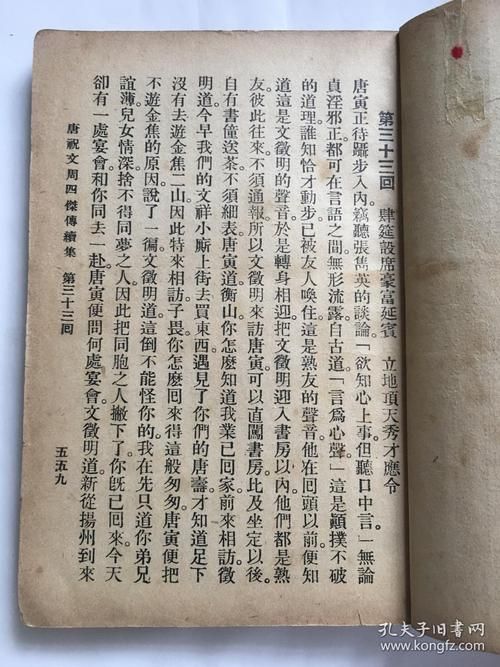 第三十三回　肆筵設席豪富延賓　立地頂天秀才應令
唐寅正待躡步入內。竊聽張雋英的談論「欲知心上事。但聽口中言」。無論
貞淫邪正。都可在言語之間。無形流露。自古道「言爲心聲」這是顚撲不破
的道理。誰知恰才動步。已被友人喚住。這是熟友的聲音。他在囘頭以前。便知
道這是文徵明的聲音。於是轉身相迎。把文徵明迎入書房以內。他們都是熟
友。彼此往來。不須通報。所以文徵明來訪唐寅。可以直闖書房。比及坐定以後。
自有書僮送茶。不須細表。唐寅道。衡山你怎麼知道我業已回家。前來相訪。徵
明道。今早我們的文祥小廝上街去買東西。遇見了你們的唐壽。才知道足下
沒有去遊金焦二山。因此特來相訪。子畏你怎麼回來得這般匆匆。唐寅便把
不遊金焦的原因。說了一徧。文徵明道。這倒不能怪你的。我在先只道你弟兄
誼薄。兒女情深。捨不得同夢之人。因此把同胞之人撇下了。你旣已回來。今天
卻有一處宴會。和你同去一赴。唐寅便問何處宴會。文徵明道。新從揚州到來
唐祝文周四傑傳續集　第三十三囘
五五九
孔夫子旧书网
www.kongfz.com